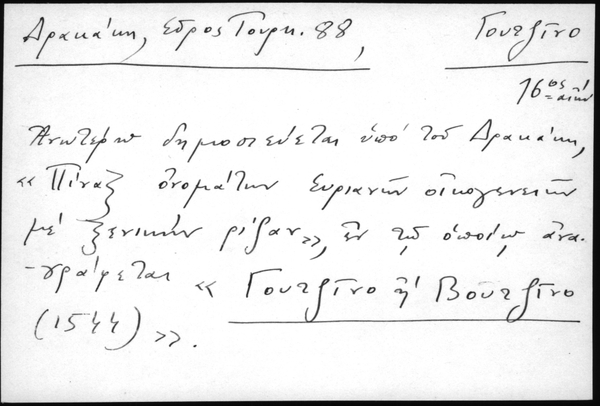 Δρακάκη, Σῦρος Τουρκ. 88, Γουτζῖνο
16ος αἰών
Ἀνωτέρω δημοσιεύεται ὑπό τοῦ Δρακάκη,
«Πίναξ ὀνομάτων Συριανῶν οἰκογενειῶν
μέ ξενικήν ρίζαν», ἐν τῷ ὁποίῳ ἀνα-
-γράφεται «Γουτζῖνο ἤ Βουτζῖνο
(1544)».